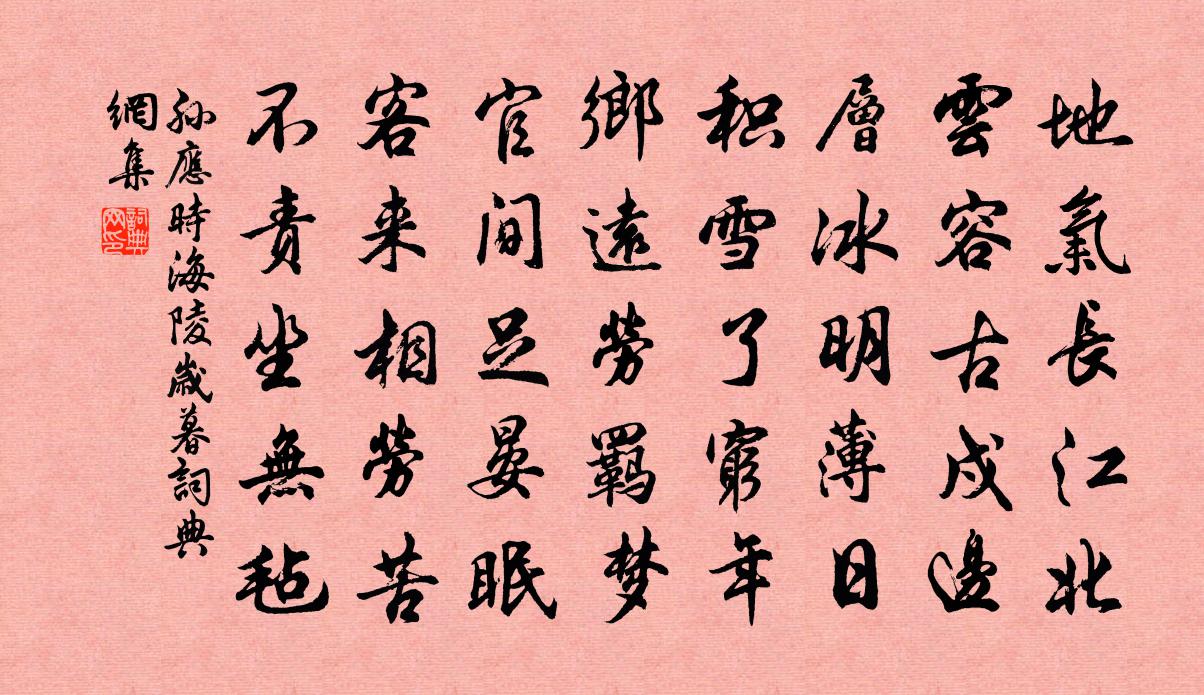 地氣長江北
雲容古戍邊
層冰明薄日
积雪了窮年
鄉遠勞羈梦
官间足晏眠
客来相勞苦
不责坐無毡
孙應時海陵歲暮詞典
網集
詞典
网印